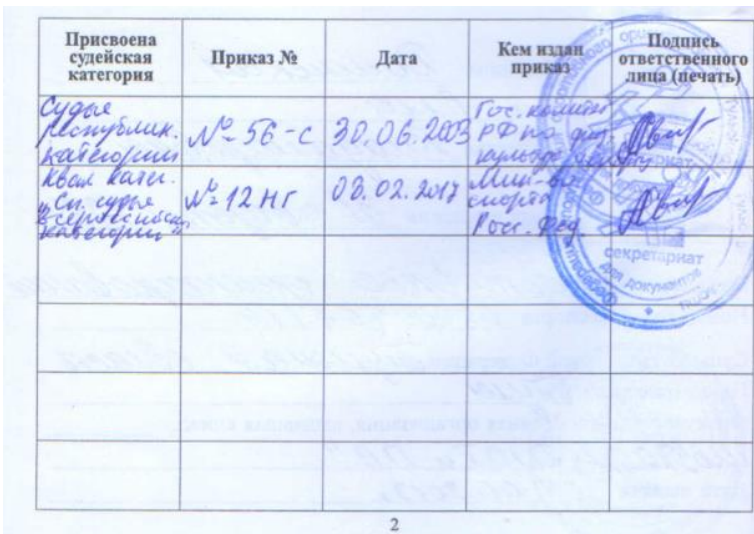 Присвоена
судейская
категория
Приказ №
Дата
Кем издан
приказ
Подпись
ответственного
лица (печать)
Судья
республик.
категории
№ 56-с
30.06.2003
Гос. комитет
РФ по физ.
культуре
Квал. катег.
"Сп. судья
всероссийской
категории"
№ 12 нг
03.02.2017
Мин-во
спорта
Росс. Фед.
секретариат
для документов
2